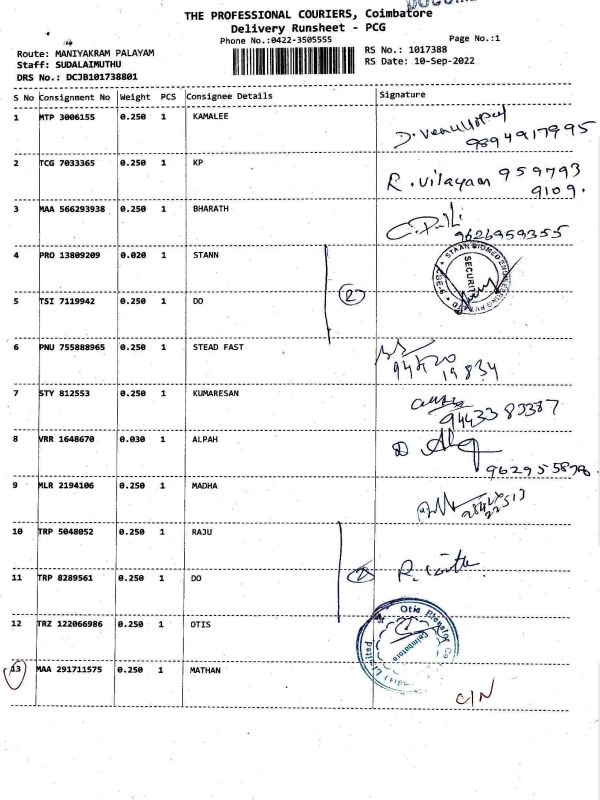 THE PROFESSIONAL COURIERS, Coimbatore
Delivery Runsheet - PCG
Phone No.:0422-3505555 Page No.:1
Route: MANIYAKRAM PALAYAM RS No.: 1017388
Staff: SUDALAIMUTHU RS Date: 10-Sep-2022
DRS No.: DCJB101738801
S No Consignment No Weight PCS Consignee Details Signature
1 MTP 3006155 0.250 1 KAMALEE
9894917995
2 TCG 7033365 0.250 1 KP R. Vilayam 959793
9109.
3 MAA 566293938 0.250 1 BHARATH
9626959355
4 PRO 13809209 0.020 1 STANN
STAAN BIOMED ENGINEERING PVT LTD CBE-6
SECURITY
(2)
5 TSI 7119942 0.250 1 DO
6 PNU 755888965 0.250 1 STEAD FAST
94420
19834
7 STY 812553 0.250 1 KUMARESAN
9443383387
8 VRR 1648670 0.030 1 ALPAH
9629558
9 MLR 2194106 0.250 1 MADHA
10 TRP 5048052 0.250 1 RAJU
(2) R.
11 TRP 8289561 0.250 1 DO
12 TRZ 122066986 0.250 1 OTIS
Otis Elevator Co (India) Limited
Coimbatore
13 MAA 291711575 0.250 1 MATHAN
C/N